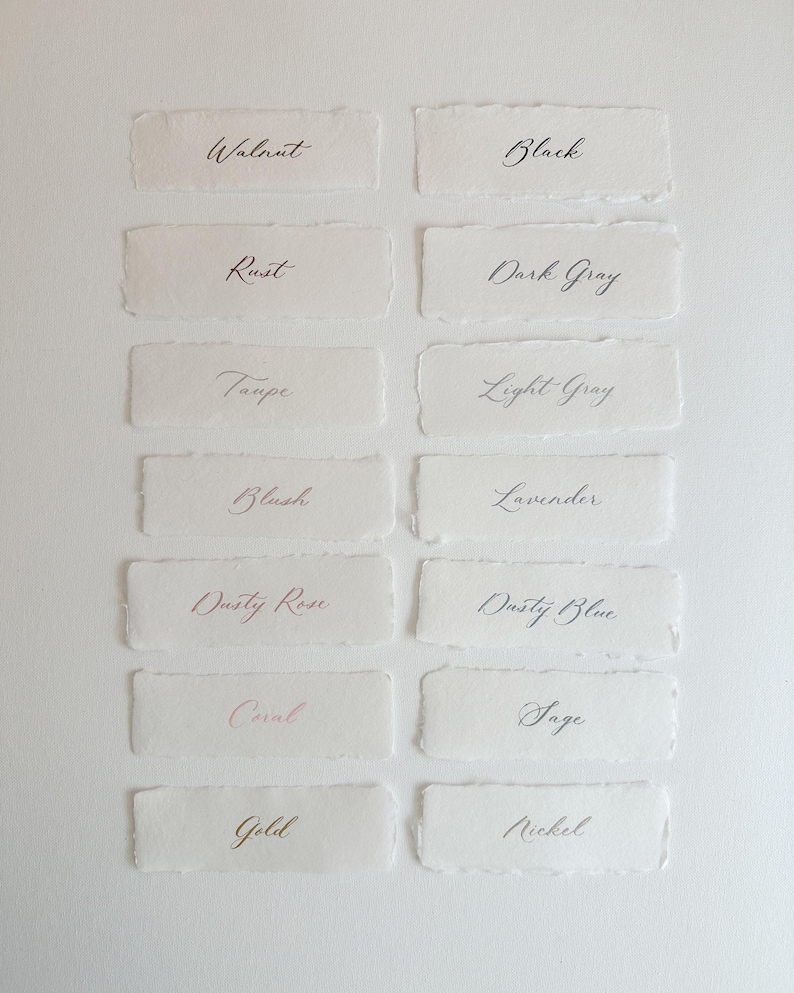 Walnut
Black
Rust
Dark Gray
Taupe
Light Gray
Blush
Lavender
Dusty Rose
Dusty Blue
Coral
Sage
Gold
Nickel